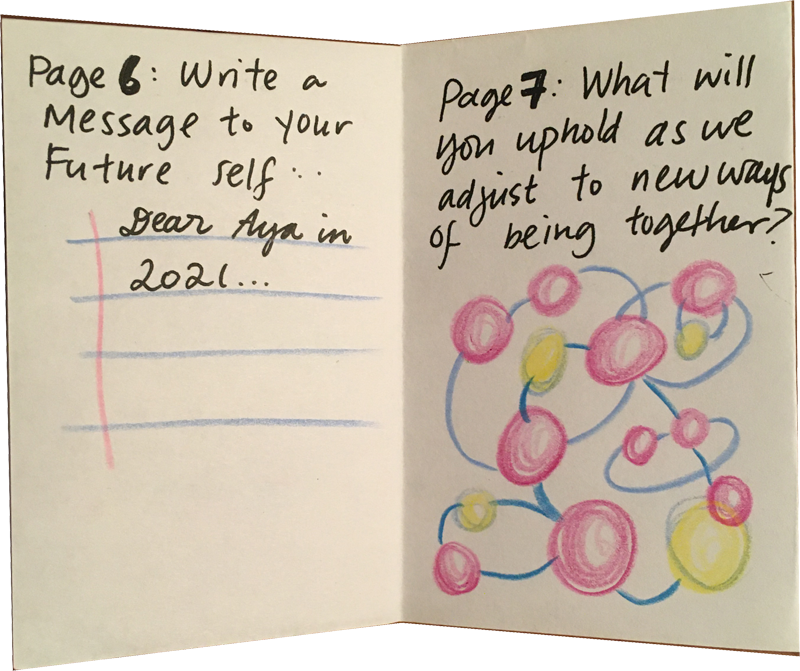 Page 6: Write a
Message to your
Future self...
Dear Aya in
2021...
Page 7: What will
you uphold as we
adjust to new ways
of being together?